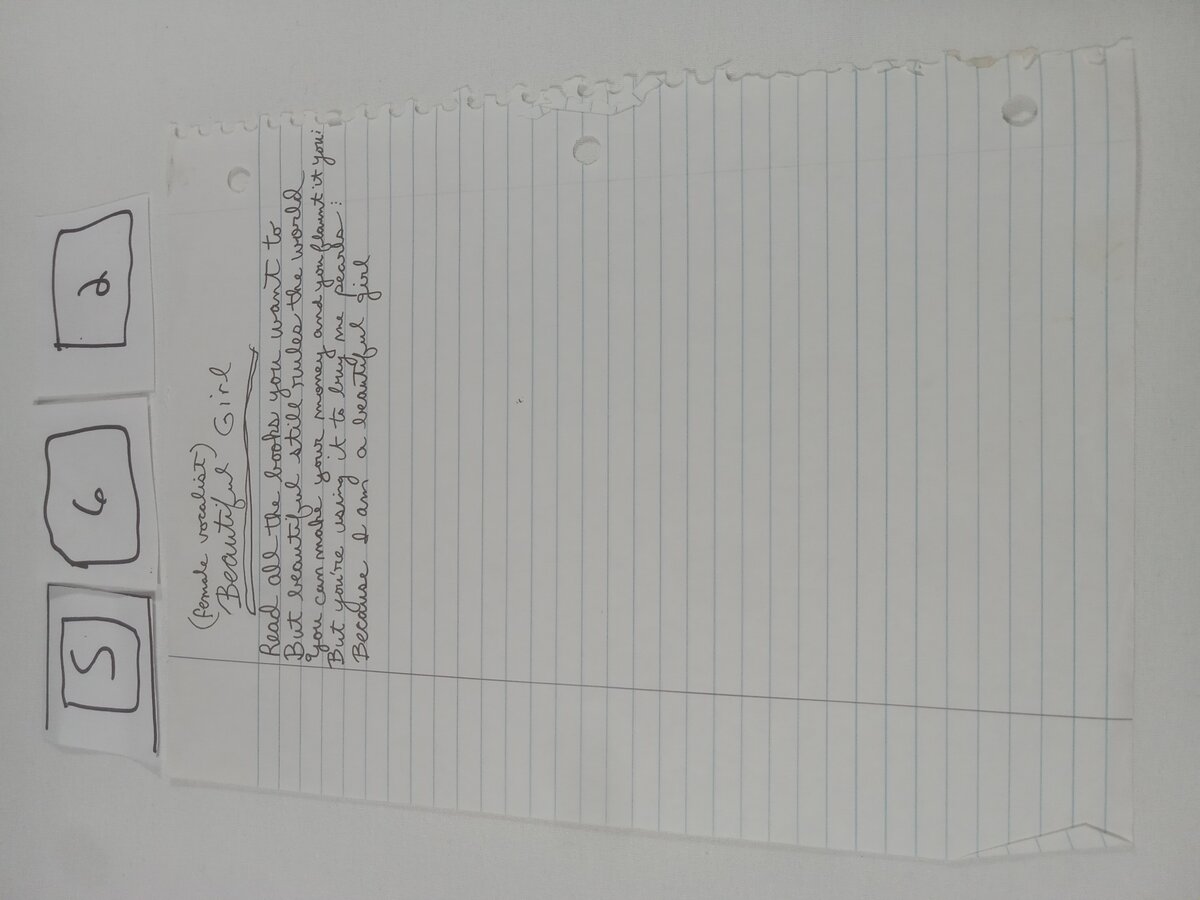 5 6 2
(female vocalist)
Beautiful Girl
Read all the books you want to
But beautiful still rules the world
You can make your money and you flaunt it you
But you're using it to buy me pearls:
Because I am a beautiful girl